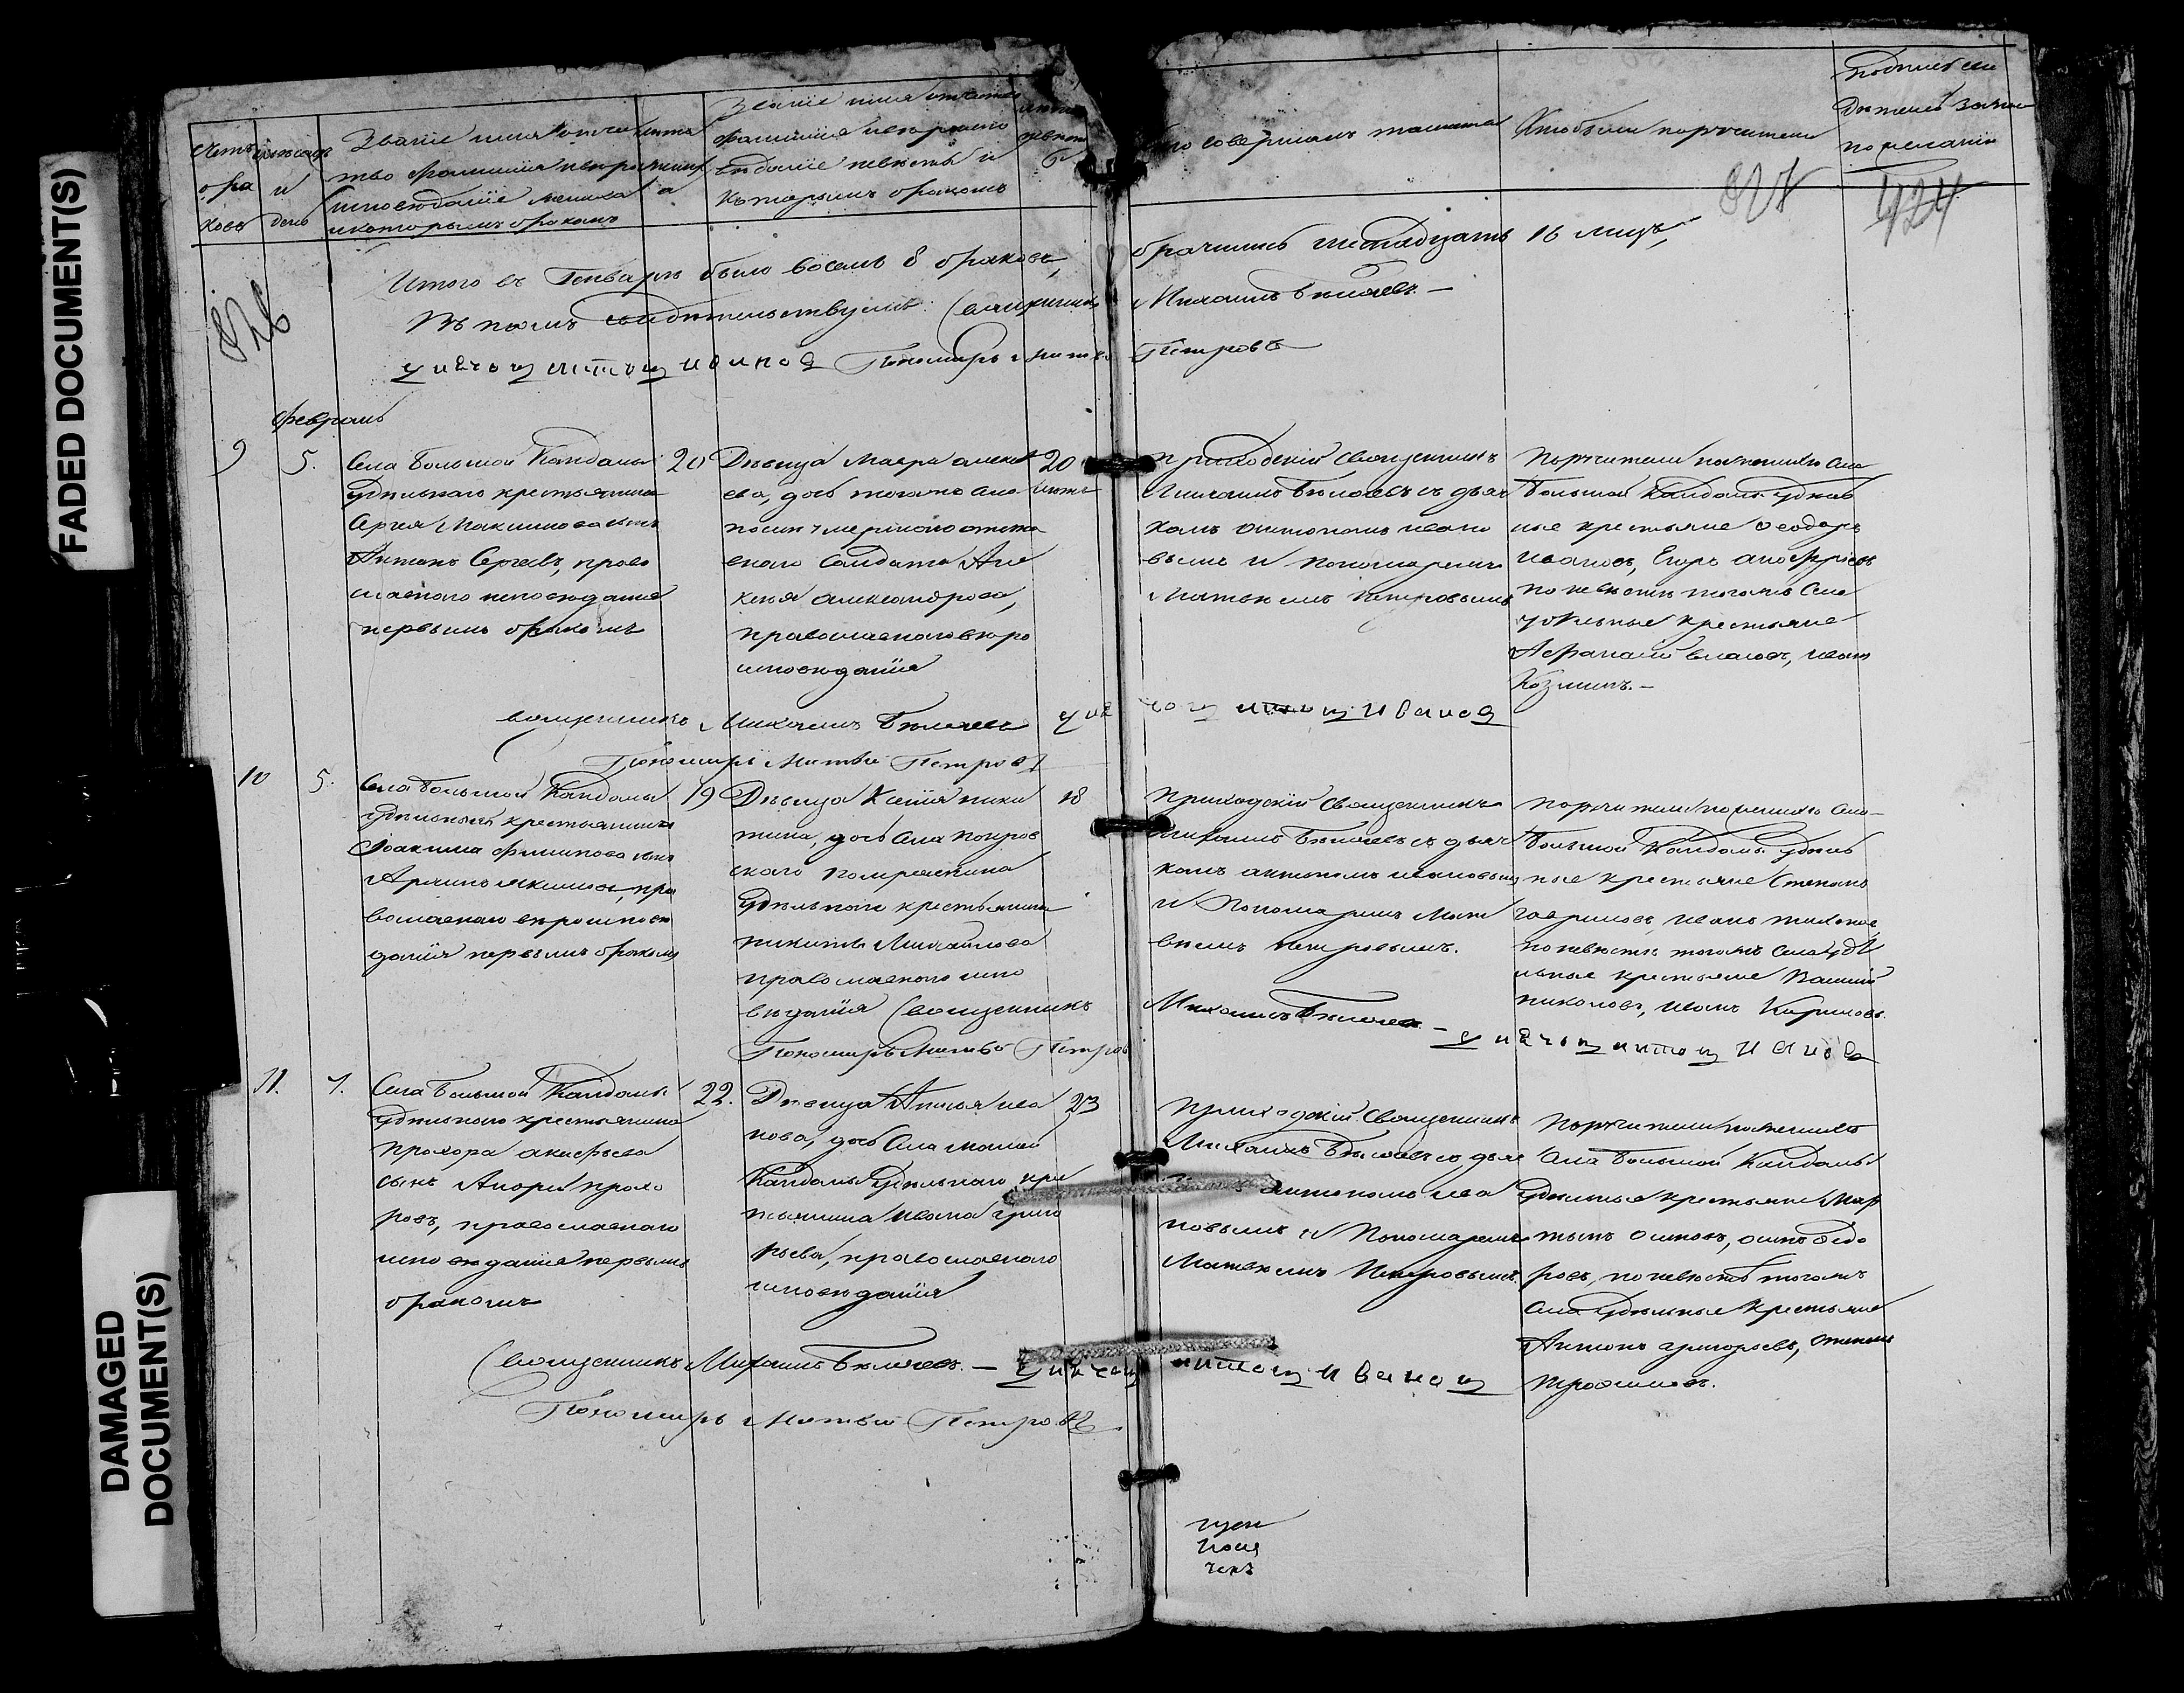 FADED DOCUMENT(S)
DAMAGED
DOCUMENT(S)
Счетъ
бра
ковъ
Мѣсяцъ
и
день
Званіе имя отче
ство фамилія и вѣро
исповѣданіе жениха
и которымъ бракомъ
лѣта
жених
а
Званіе имя отчество
фамилія и вѣроиспо
вѣданіе невѣсты и
которымъ бракомъ
лѣта
невѣст
Кто совершалъ таинство
Кто были поручители
Подпись сви
дѣтелей записи
по желанію
826
424
Итого въ Генварѣ было восемь 8 браковъ,
брачились шестнадцать 16 лицъ,
Въ томъ свидѣтельствуемъ: Священникъ
Михаилъ Бѣляевъ. –
Пономарь Матвей
Петровъ
Февраль
9
5.
Села Большой Кандалы
удѣльнаго крестьянина
Сергея Максимова сынъ
Антонъ Сергеевъ, право
славнаго исповѣданія
первымъ бракомъ
20
Дѣвица Мавра Алексѣ
ева, дочь тогоже села
отста
внаго солдата Але
ксѣя Александрова,
православнаго вѣро
исповѣданія
20
лѣтъ
Приходскій Священникъ
Михаилъ Бѣляевъ съ дьяч
комъ Антономъ Ивано
вымъ и Пономаремъ
Матвѣемъ Петровымъ
Поручители по женихѣ Села
Большой Кандалы удѣль
ные крестьяне Ѳеодоръ
Ивановъ, Егоръ
по невѣстѣ тогожъ Села
удѣльные крестьяне
Афанасій Власовъ, Иванъ
Козминъ. –
Священникъ Михаилъ Бѣляевъ
Пономарь Матвей Петровъ
10
5.
Села Большой Кандалы
удѣльнаго крестьянина
Іоакима Филипова сынъ
Якимовъ, пра
вославнаго вѣроисповѣ
данія первымъ бракомъ
19
Дѣвица Ксенія Ники
тина, дочь Села Покров
скаго
удѣльнаго крестьянина
Никиты Михайлова
православнаго испо
вѣданія Священникъ
Пономарь Матвей Петровъ
18
Приходскій Священникъ
Михаилъ Бѣляевъ съ дьяч
комъ Антономъ Ивановымъ
и Пономаремъ Мат
вѣемъ Петровымъ.
Михаилъ Бѣляевъ –
Поручители по женихѣ Села
Большой Кандалы удѣль
ные крестьяне Степанъ
Гавриловъ, Иванъ
по невѣстѣ тогожъ Села удѣ
льные крестьяне Василій
Николаевъ, Иванъ Кириловъ.
11.
7.
Села Большой Кандалы
удѣльнаго крестьянина
Прохора
сынъ Андрей Прохо
ровъ, православнаго
исповѣданія первымъ
бракомъ
22.
Дѣвица Анисья Ива
нова, дочь Села Малой
Кандалы удѣльнаго кре
стьянина Ивана Григо
рьева, православнаго
исповѣданія
23
Приходскій Священникъ
Михаилъ Бѣляевъ съ дьяч
Антономъ Ива
новымъ и Пономаремъ
Матвѣемъ Петровымъ.
Поручители по женихѣ
Села Большой Кандалы
удѣльные крестьяне Мар
тынъ Осиповъ, Осипъ Ѳедо
ровъ, по невѣстѣ тогожъ
Села удѣльные крестьяне
Антонъ Григорьевъ, Степанъ
Трофимовъ.
Священникъ Михаилъ Бѣляевъ. –
Пономарь Матвей Петровъ